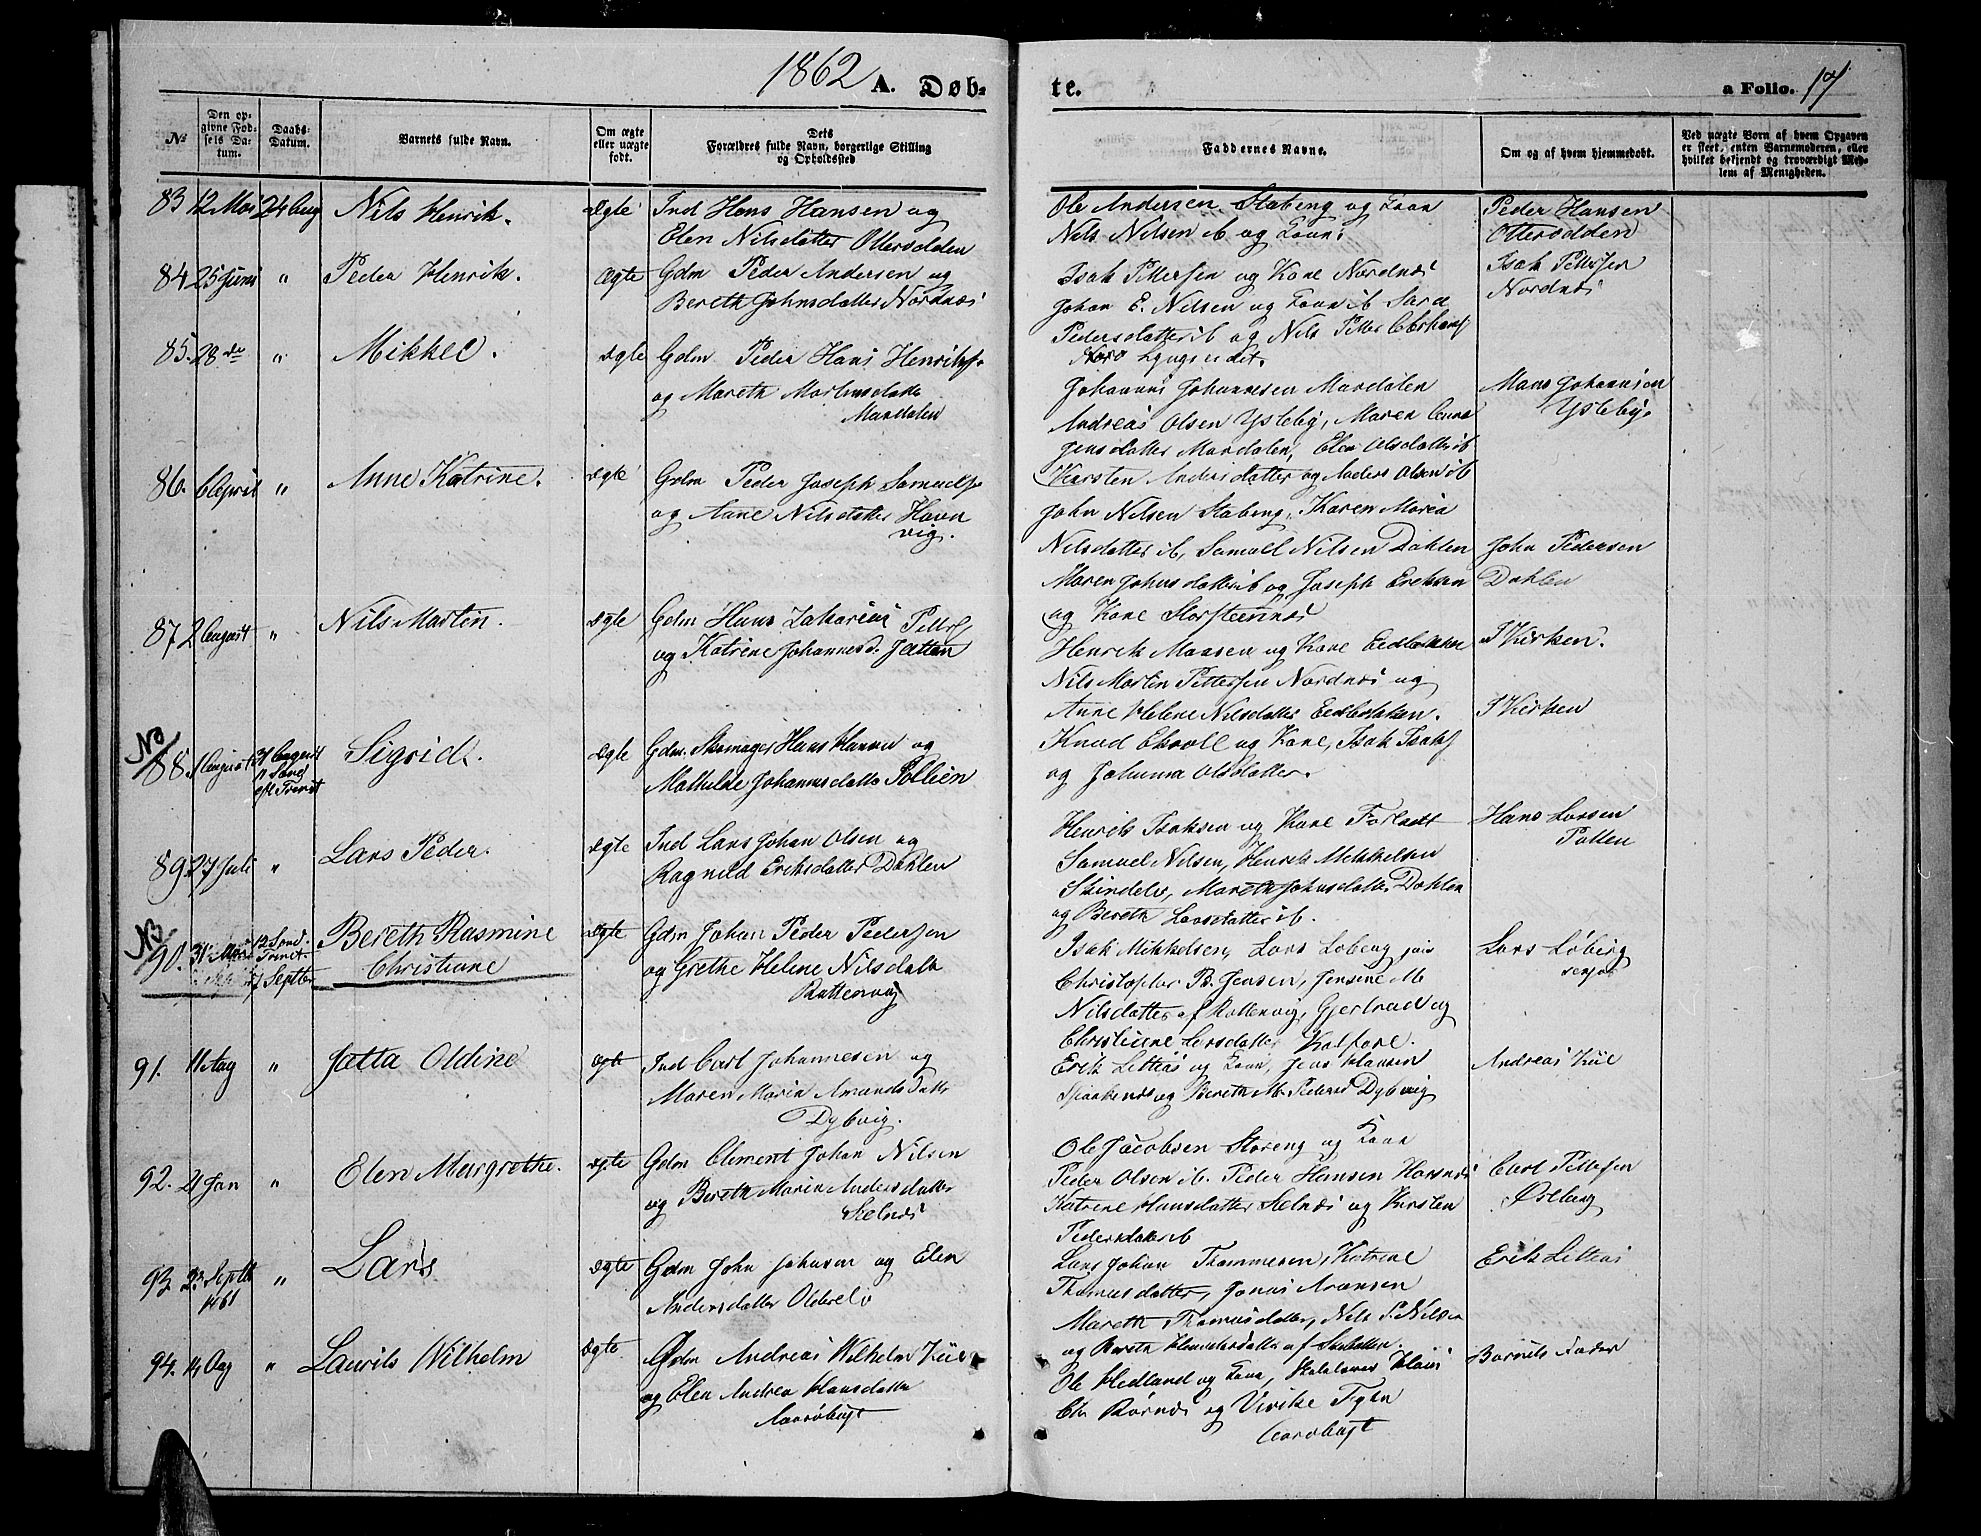 1862 A. Døb-
te.
a Folio. 17
№
Den op-
givne Fød-
sels Da-
tum.
Daabs-
Datum.
Barnets fulde Navn.
Om ægte
eller uægte
født.
Dets
Forældres fulde Navn, borgerlige Stilling
og Opholdssted
Faddernes Navne.
Om og af hvem hjemmedøbt.
Ved uægte Børn af hvem Opgaven
er skeet, enten Barnemoderen, eller
hvilket bekjendt og troværdigt Med-
lem af Menigheden.
83 12 Mai 24 Aug Nils Henrik. Ægte Ind Hans Hansen og
Elen Nilsdatter Ottersdden
Ole Andersen Stabeng og Kone
Nils Nilsen ib og Kone.
Peder Hansen
Otterodden
84 25 Juni " Peder Henrik. Ægte Gdm Peder Andersen og
Bereth Johnsdatter Nordnæs
Isak Pittersen og Kone Nordnæs
Johan E. Nilsen og Kone ib Sara
Pedersdatter ib og Nils Pitter
Lyngseidet.
Isak Pittersen
Nordnæs
85. 28 do " Mikkel. Ægte Gdm Peder Hans Henriks.
og Mareth Mortensdatter
Mandalen
Johannes Johannesen Mandalen
Andreas Olsen Ysteby, Maren Anna
Jensdatter Mandalen, Elen Olsdatter ib
Kiersten Andersdatter og Anders Olsen ib
Mans Johannesen
Ysteby.
86. April " Anne Katrine. Ægte Gdm Peder Joseph Samuels.
og Anne Nilsdatter Havn
vig.
John Nilsen Stabeng, Karen Maria
Nilsdatter ib, Samuel Nilsen Dahlen
Maren Johnsdatter ib og Joseph Eriksen
og Kone Storsteennæs
John Pedersen
Dahlen
87 2 August " Nils Martin. Ægte Gdm Hans Zakarias Petters.
og Katrine Johannesd. Jatten
Henrik Maasen og Kone Eidbakken
Nils Martin Pettersen Nordnæs og
Anne Helene Nilsdatter Eedbakken.
I Kirken.
NB
88. 1 August 31 August
11 Sønd
eft Trinit
Sigrid. Ægte Gdm. Skomager Hans Hansen og
Mathilde Johannesdatter Pollien
Knud Ekroll og Kone, Isak Isaks
og Johanna Olsdatter.
I Kirken
89 27 Juli " Lars Peder. Ægte Ind Lars Johan Olsen og
Ragnild Eriksdatter Dahlen
Henrik Isaksen og Kone
Samuel Nilsen, Henrik Mikkelsen
Skindelv, Mareth Johnsdatter Dahlen
og Bereth Larsdatter ib.
Hans Larsen
Pollen
NB
90. 31 12 Sønd.
Trinit.
7 Septbr
Bereth Rasmine
Christiane
Ægte Gdm Johan Peder Pedersen
og Grethe Helene Nilsdatt
Rottenvig
Isak Mikkelsen, Lars Loberg jun
Christopher B. Jensen, Jensine M
Nilsdatter af Rottenvig, Gjertrud og
Christiane Larsdatter
Lars Løberg
senjor
91. 11 Aug " Jætta Oldine Ægte Ind Carl Johannesen og
Maren Maria Amunds Datter
Dybvig.
Erik Litteas og Kone, Jens Hansen
Spaaknæs og Bereth M. Pedersd Dybvig
Andreas Kiil
92. 21 Jan " Elen Margrethe. Ægte Gdm Clement Johan Nilsen
og Bereth Maria Andersdatter
Selnæs
Ole Jacobsen Storeng og Kone
Peder Olsen ib. Peder Hansen Havnnæs
Katrine Hansdatter Selnæs og Kirsten
Pedersdatter ib
Carl Pettersen
Østberg
93 23 Septb
1861
" Lars Ægte Gdm John Johnsen og Elen
Andersdatter Olderelv
Lars Johan Thommesen, Katrine
Thomasdatter, Jonas Aronsen
Mareth Thomasdatter, Nils P. Nilsen
og Bereth af
Erik Litteas
94. 14 Aug " Laurits Wilhelm Ægte Gdm Andreas Wilhelm Kiil
og Elen Andrea Hansdatter
Aarøbugt
Ole Hedland og Kone, Skolelærer Klaus
Chr Rørnæs og Vivike Fygen
Aarøbugt
Barnets Fader